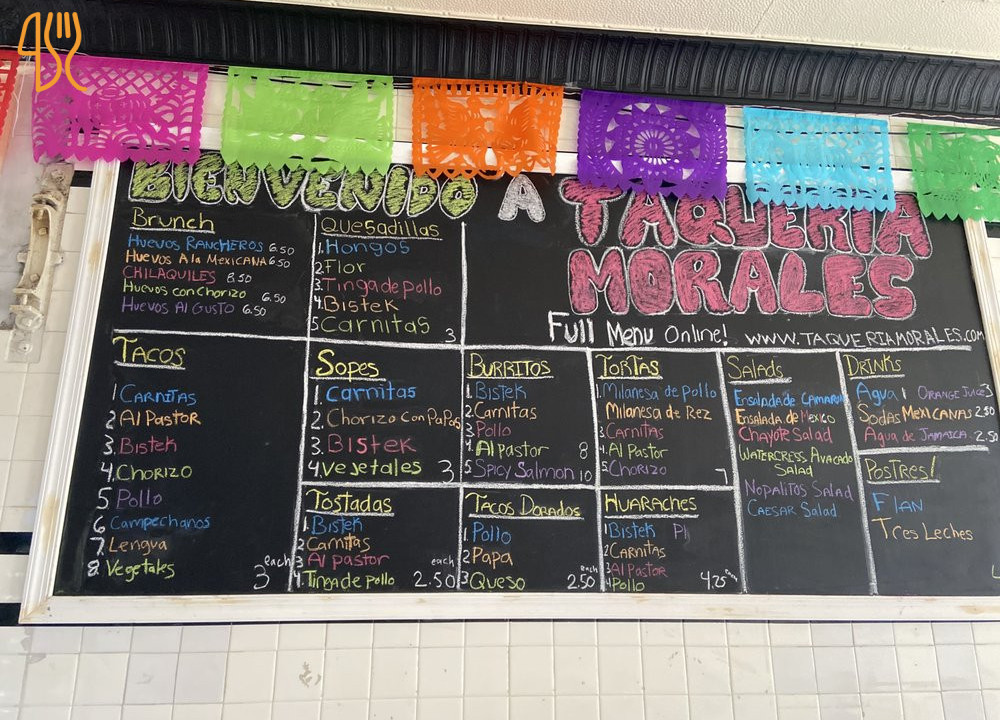 BIENVENIDO A TAQUERIA
MORALES
Full Menu Online! WWW.TAQUERIAMORALES.COM
Brunch
Huevos RANCHEROS 6.50
Huevos A la MEXICANA 6.50
CHILAQUILES 8.50
Huevos con Chorizo 6.50
Huevos Al Gusto 6.50
Quesadillas
1. Hongos
2. Flor
3. Tinga de pollo
4. Bistek
5 Carnitas 3
TACOS
1 CARNITAS
2 Al Pastor
3 Bistek
4 CHORIZO
5 Pollo
6 Campechanos
7 Lengua
8 Vegetales each 3
Sopes
1. Carnitas
2. Chorizo Con Papas
3. Bistek
4 Vegetales 3
Tostadas
1. Bistek
2 Carnitas
3 Al pastor each
4. Tinga de pollo 2.50
BURRITOS
1. Bistek
2. Carnitas
3. Pollo
4. Al pastor 8
5. SPICY Salmon 10
TACOS DORADOS
1. Pollo
2 Papa
3 Queso each 2.50
TORTAS
1. Milanesa de Pollo
Milanesa de Rez
3. Carnitas
4. Al Pastor
5. CHORIZO 7
HUARACHES
1 Bistek
2 CARNITAS
3 Al Pastor
4 Pollo 4.25 each
Salads
Ensalada de CAMARON
Ensalada de Mexico
Chayote Salad
WATERCRESS AVACADO
Salad
Nopalitos Salad
CAESAR Salad
DRINKS
Agua 1 ORANGE JUICE 3
Sodas MEXICANAS 2.50
Agua de JAMAICA 2.50
POSTRES!
FLAN
Tres Leches